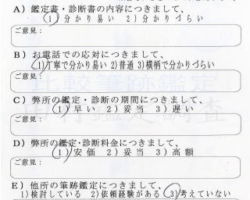 A) 鑑定書・診断書の内容につきまして、
1) 分かり易い 2) 分かりづらい
ご意見：
B) お電話での応対につきまして、
1) 丁寧で分かり易い 2) 普通 3) 横柄で分かりづらい
ご意見：
C) 弊所の鑑定・診断の期間につきまして、
1) 早い 2) 妥当 3) 遅い
ご意見：
D) 弊所の鑑定・診断料金につきまして、
1) 安価 2) 妥当 3) 高額
ご意見：
E) 他所の筆跡鑑定につきまして、
1) 検討している 2) 依頼経験がある 3) 考えていない